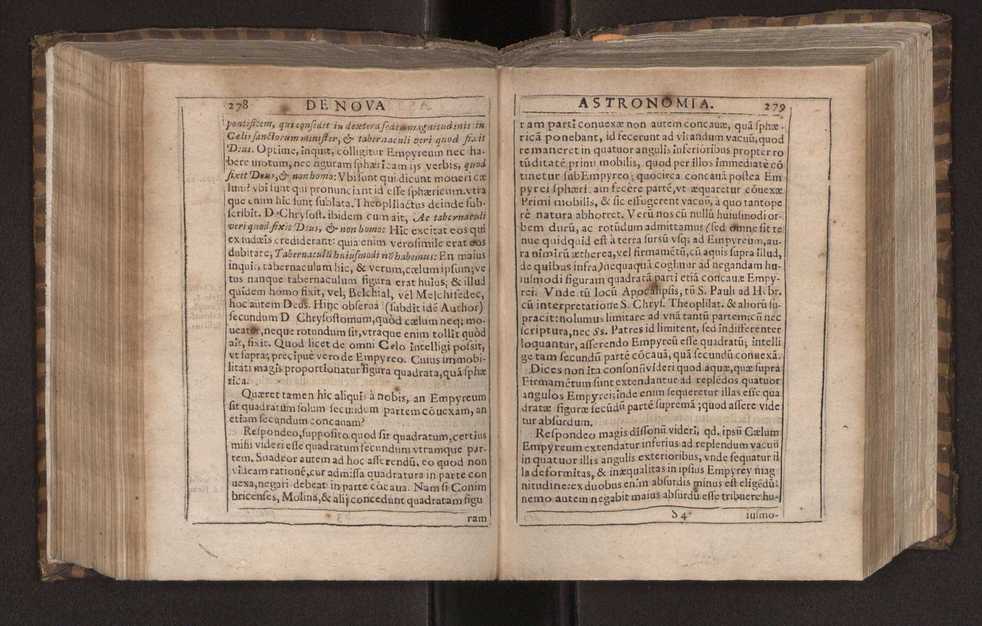 278 DE NOVA
pontificem, qui consedit in dextera sedis magnitudinis in
Cælis sanctorum minister, & tabernaculi veri quod fixit
Deus. Optime, inquit, colligitur Empyreum nec ha-
bere motum, nec figuram sphæricam ijs verbis, quod
fixit Deus, & non homo: Vbi sunt qui dicunt moueri cæ
lum? vbi sunt qui pronunciant id esse sphæricum. vtra
que enim hic sunt sublata. Theophilactus deinde sub-
scribit. D. Chrysost. ibidem cum ait, Ac tabernaculi
veri quod fixit Deus, & non homo: Hic excitat eos qui
ex iudæis crediderant: quia enim verosimile erat eos
dubitare, Tabernaculũ huiusmodi nõ habemus: En maius
inquit, tabernaculum hic, & verum, cælum ipsum; ve
tus nanque tabernaculum figura erat huius, & illud
quidem homo fixit, vel, Belchial, vel Melchisedec,
hoc autem Deus. Hinc obserua (subdit idẽ Author)
secundum D Chrysostomum, quòd cælum neq; mo-
ueatur, neque rotundum sit, vtraque enim tollit quòd
ait, fixit. Quod licet de omni Cœlo intelligi possit,
vt supra, precipuè vero de Empyreo. Cuius immobi-
litati magis proportionatur figura quadrata, quã sphæ
rica.
Quæret tamen hic aliquis à nobis, an Empyreum
sit quadratum solum secundum partem cõuexam, an
etiam secundum concauam?
Respondeo, supposito quod sit quadratum, certius
mihi videri esse quadratum secundum vtramque par-
tem. Suadeor autem ad hoc asserendũ, eo quod non
videam rationẽ, cur admissa quadratura in parte con
uexa, negari debeat in parte cõcaua. Nam si Conim
bricenses, Molina, & alij concedunt quadratam figu
ram
ASTRONOMIA. 279
ram parti conuexæ non autem concauæ, quã sphæ-
ricã ponebant, id fecerunt ad vitandum vacuũ, quod
remaneret in quatuor angulis inferioribus propter ro
tũditatẽ primi mobilis, quod per illos immediatè cõ
tinetur sub Empyreo; quocirca concauã postea Em
pyrei sphæricam fecere partẽ, vt æquaretur cõuexæ
Primi mobilis, & sic effugerent vacuũ, à quo tantope
rè natura abhorret. Verũ nos cũ nullũ huiusmodi or-
bem durũ, ac rotũdum admittamus (sed omne sit te
nue quidquid est à terra sursũ vsq; ad Empyreum, au-
ra nimirũ ætherea, vel firmamẽtũ, cũ aquis supra illud,
de quibus infra) nequaquã cogimur ad negandam hu-
iusmodi figuram quadratã parti etiã concauæ Empy-
rei. Vnde tũ locũ Apocalipsis, tũ S. Pauli ad Hebr.
cũ interpretatione S. Chrys. Theophilat. & aliorũ su-
pracit: nolumus limitare ad vnã tantũ partem; cũ nec
scriptura, nec Ss. Patres id limitent, sed indifferenter
loquantur, asserendo Empyreũ esse quadratũ; intelli
ge tam secundũ partẽ cõcauã, quã secundũ conuexã.
Dices non ita consonũ videri quod aquæ, quæ supra
Firmamẽtum sunt extendantur ad replẽdos quatuor
angulos Empyrei; inde enim sequeretur illas esse qua
dratæ figuræ secũdũ partẽ supremã; quod assere vide
tur absurdum.
Respondeo magis dissonũ videri, qd. ipsũ Cælum
Empyreum extendatur inferius ad replendum vacuũ
in quatuor illis angulis exterioribus, vnde sequatur il
la deformitas, & inæqualitas in ipsius Empyrei mag
nitudine: ex duobus enim absurdis minus est eligẽdũ:
nemo autem negabit maius absurdũ esse tribuere hu-
S 4 iusmo-